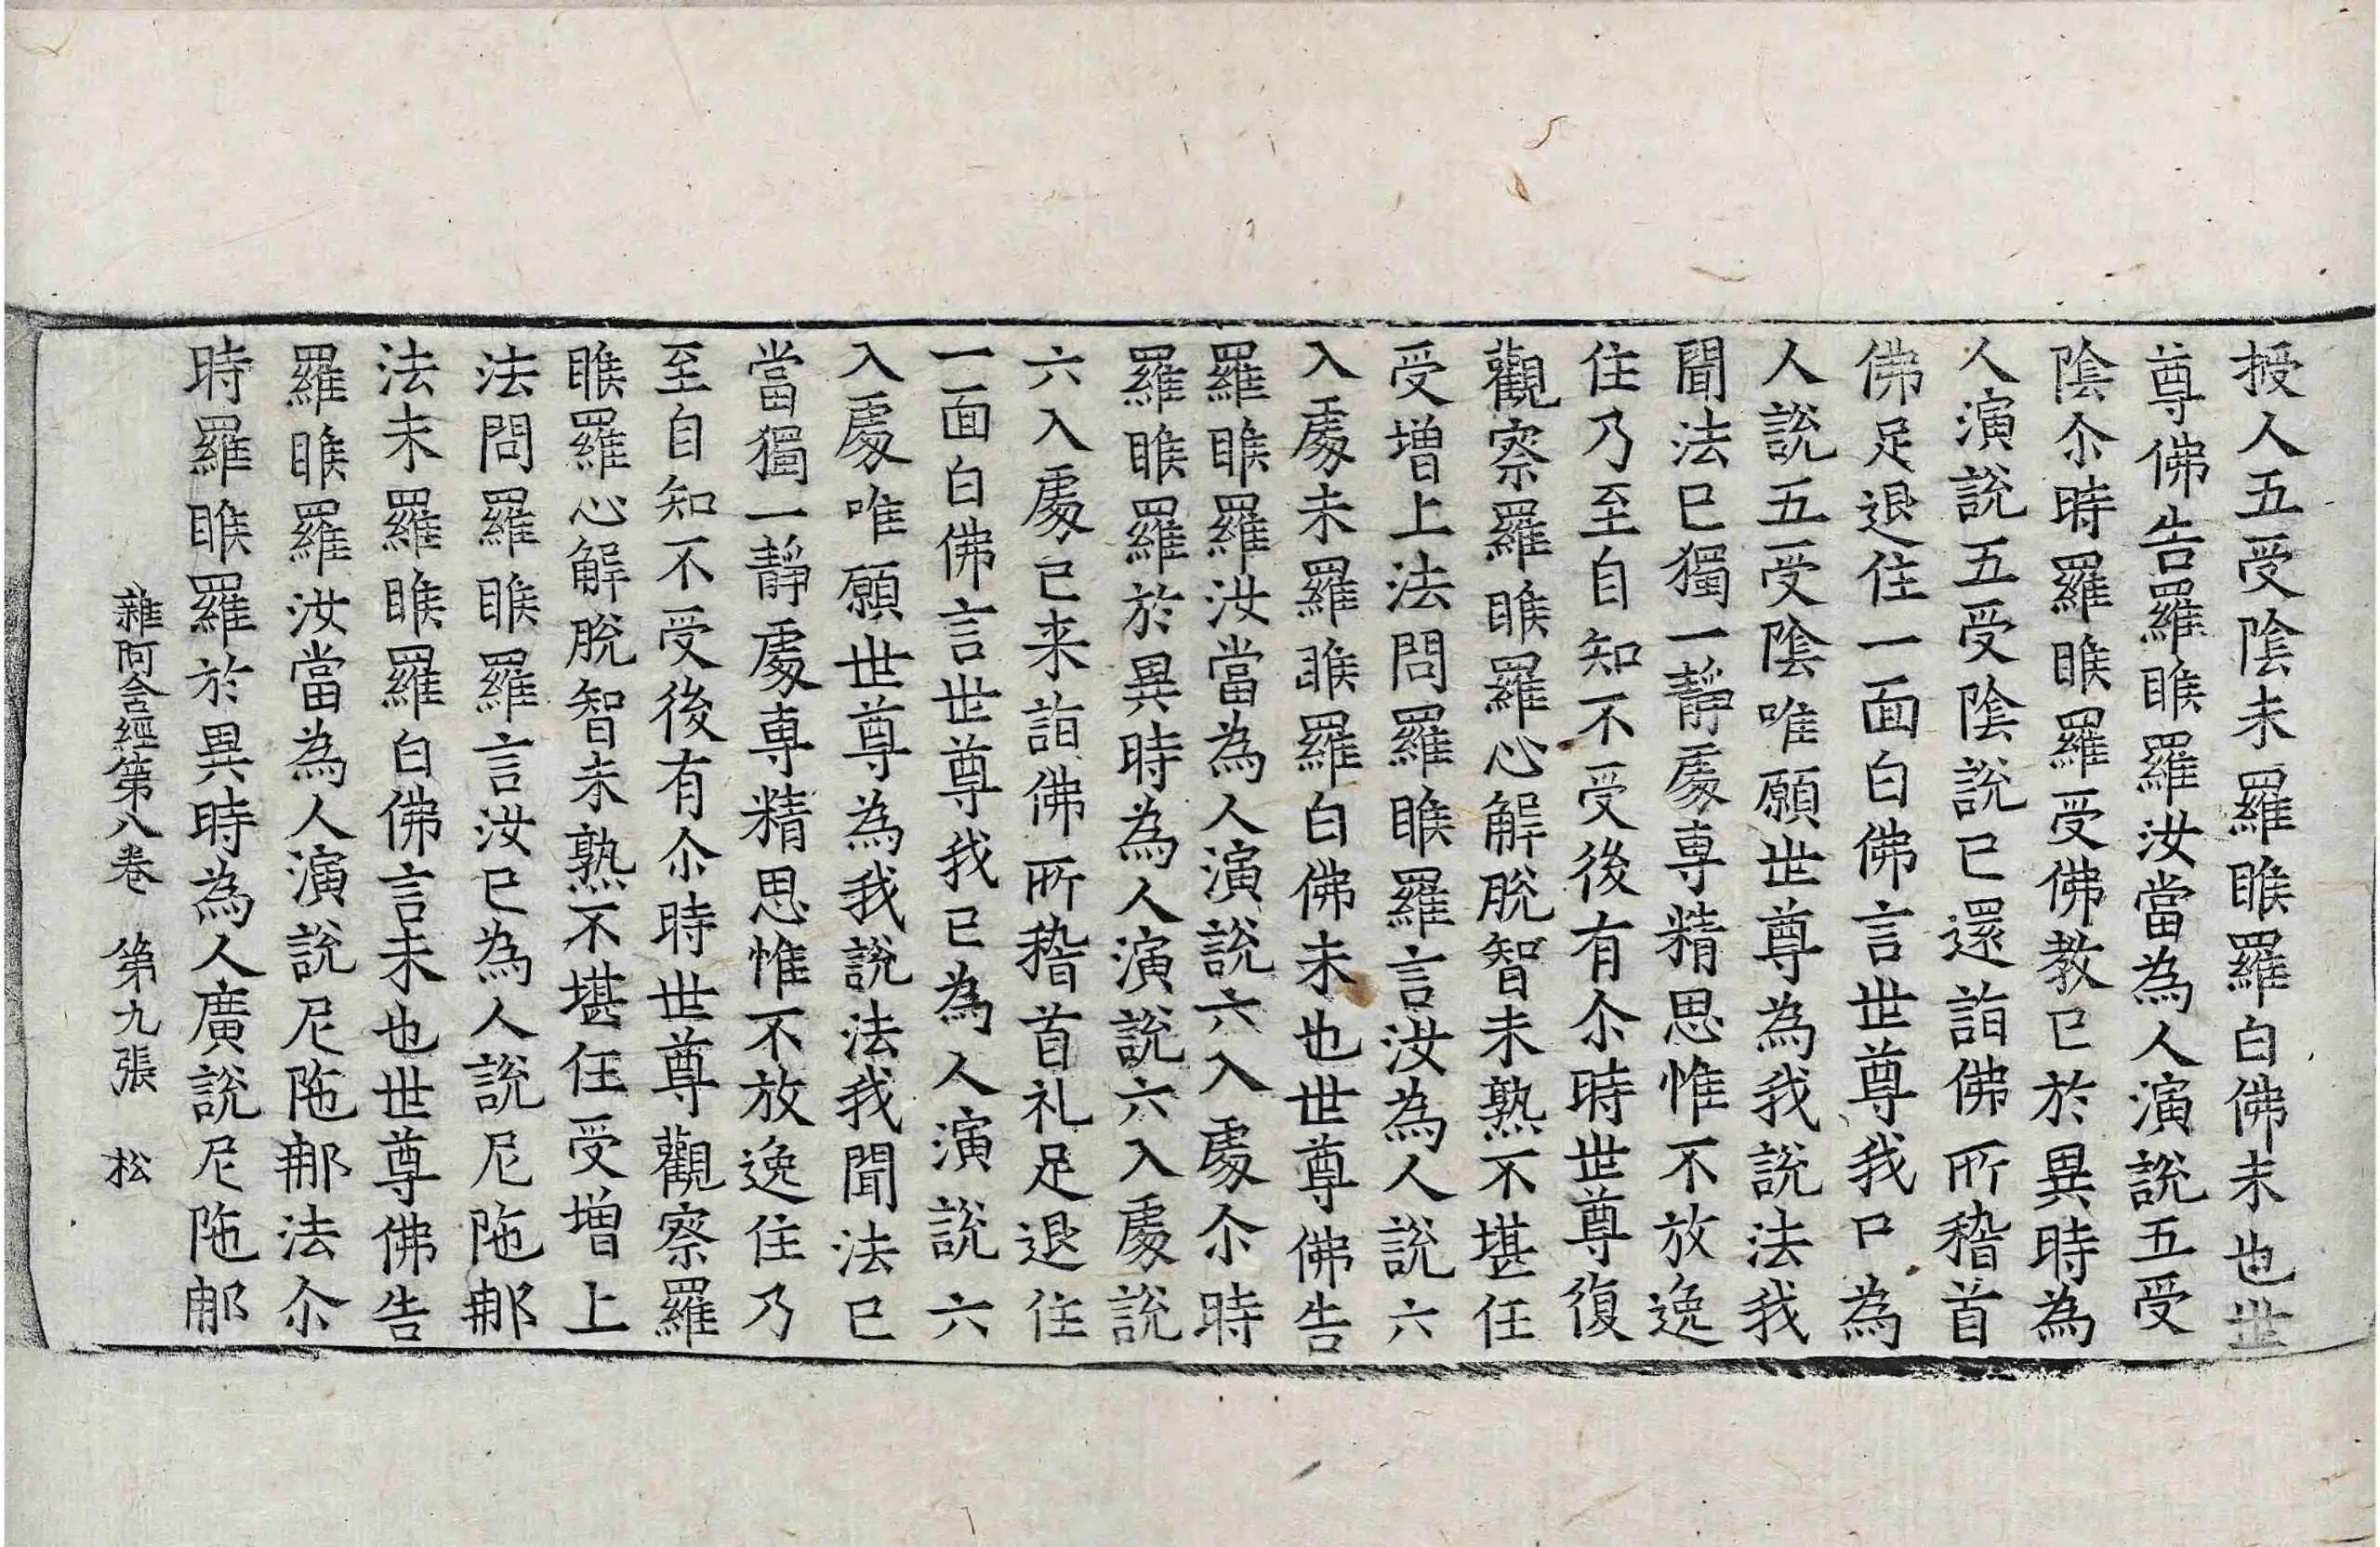 授人五受陰未羅睺羅白佛未也世
尊佛告羅睺羅汝當為人演說五受
陰尒時羅睺羅受佛教已於異時為
人演說五受陰說已還詣佛所稽首
佛足退住一面白佛言世尊我已為
人說五受陰唯願世尊為我說法我
聞法已獨一靜處専精思惟不放逸
住乃至自知不受後有尒時世尊復
觀察羅睺羅心解脫智未熟不堪任
受增上法問羅睺羅言汝為人說六
入處未羅睺羅白佛未也世尊佛告
羅睺羅汝當為人演說六入處尒時
羅睺羅於異時為人演說六入處說
六入處已来詣佛所稽首礼足退住
一面白佛言世尊我已為人演說六
入處唯願世尊為我說法我聞法已
當獨一靜處専精思惟不放逸住乃
至自知不受後有尒時世尊觀察羅
睺羅心解脫智未熟不堪任受增上
法問羅睺羅言汝已為人說尼陁䣘
法未羅睺羅白佛言未也世尊佛告
羅睺羅汝當為人演說尼陁䣘法尒
時羅睺羅於異時為人廣說尼陁䣘
雜阿含經第八卷　第九張　松